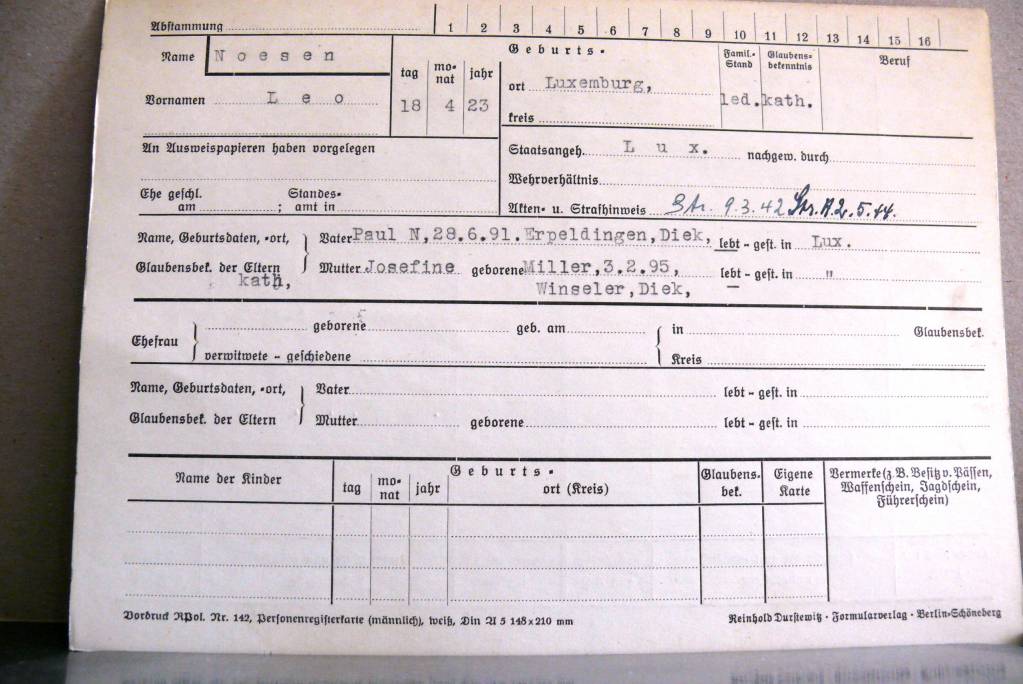 Abstammung 1 2 3 4 5 6 7 8 9 10 11 12 13 14 15 16
Name Noesen
Vornamen Leo
tag monat jahr
18 4 23
Geburts-
ort Luxemburg,
kreis
Famil.-Stand
led.
Glaubensbekenntnis
kath.
Beruf
An Ausweispapieren haben vorgelegen
Staatsangeh. Lux. nachgew. durch
Wehrverhältnis
Ehe geschl. am ; Standesamt in
Akten- u. Strafhinweis Str. 9.3.42 Str.A.2.5.44.
Name, Geburtsdaten, -ort, Vater Paul N,28.6.91.Erpeldingen,Diek, lebt - gest. in Lux.
Glaubensbek. der Eltern Mutter Josefine geborene Miller,3.2.95, lebt - gest. in "
kath, Winseler,Diek,
Ehefrau geborene geb. am in Glaubensbek.
verwitwete - geschiedene Kreis
Name, Geburtsdaten, -ort, Vater lebt - gest. in
Glaubensbek. der Eltern Mutter geborene lebt - gest. in
Name der Kinder
Geburts-
tag monat jahr ort (Kreis)
Glaubensbek.
Eigene Karte
Vermerke (z. B. Besitz v. Pässen,
Waffenschein, Jagdschein,
Führerschein)
Vordruck RPol. Nr. 142, Personenregisterkarte (männlich), weiß, Din A 5 148 x 210 mm
Reinhold Durstewitz · Formularverlag · Berlin-Schöneberg